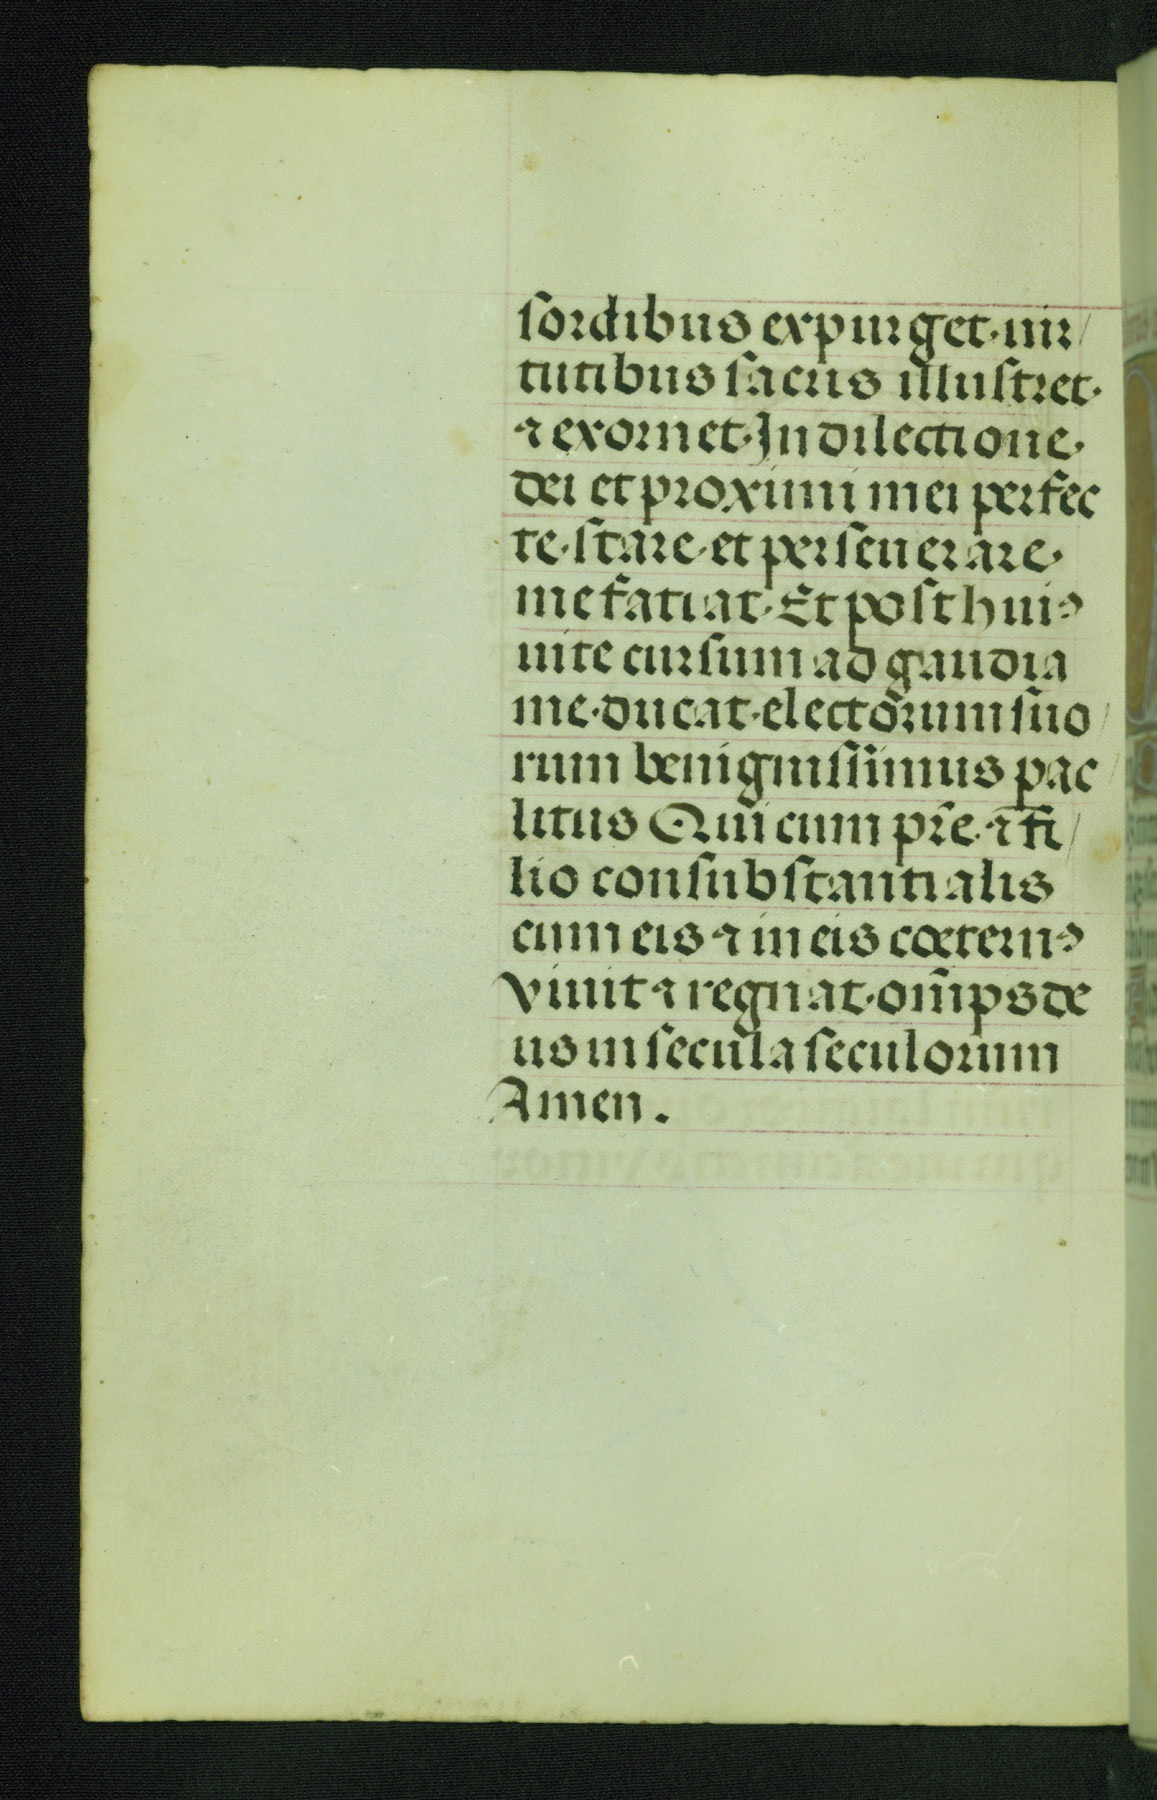 sordibus expurget·uir/
tutibus sacris illustret·
⁊ exornet·In dilectione·
dei et proximi mei perfec
te·stare·et perseuerare·
me fatiat·Et post huiꝰ
uite cursum ad gaudia
me·ducat·electorum suo/
rum benignissimus pac/
litus Qui cum pr̃e·⁊ fi/
lio consubstantialis
cum eis ⁊ in eis coeternꝰ
viuit ⁊ regnat·om̃ps de
us in secula seculorum
Amen.